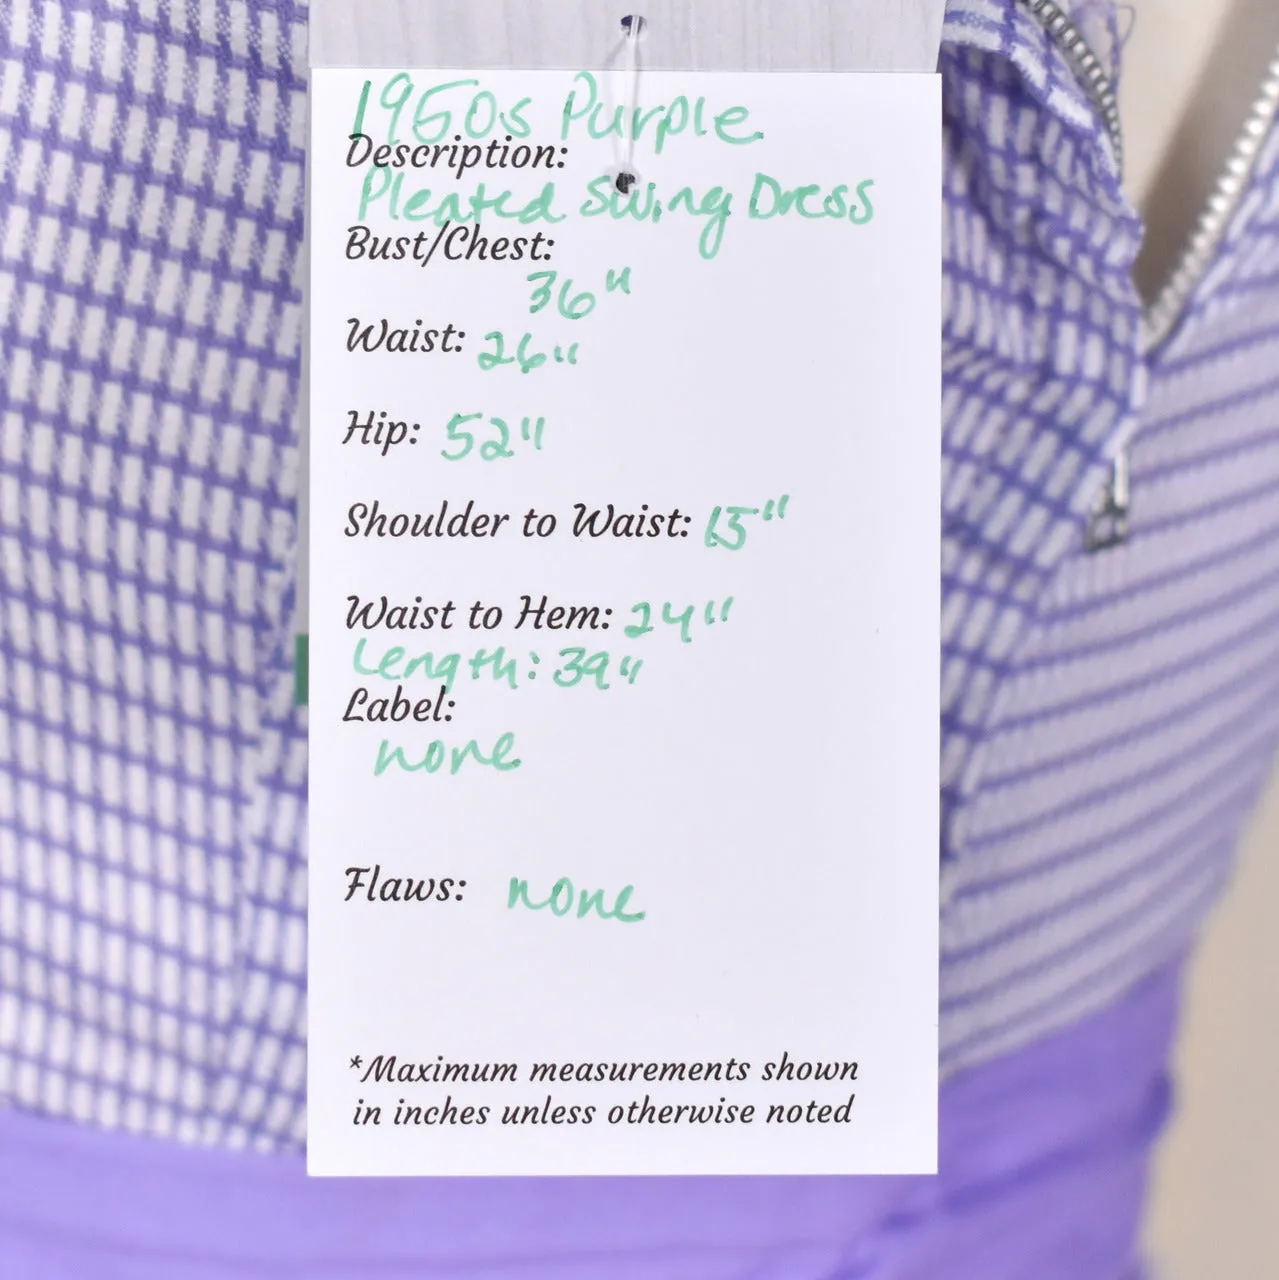 1950s Purple
Description:
Pleated Swing Dress
Bust/Chest:
36"
Waist: 26"
Hip: 52"
Shoulder to Waist: 15"
Waist to Hem: 24"
Length: 39"
Label:
none
Flaws: none
*Maximum measurements shown
in inches unless otherwise noted